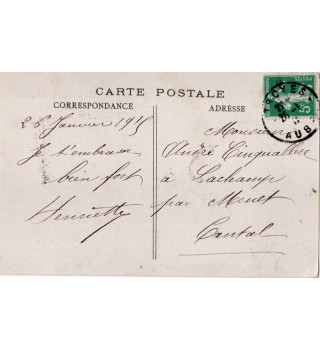 CARTE POSTALE
CORRESPONDANCE
ADRESSE
28 Janvier 1915
Je t'embrasse
bien fort
Henriette
Monsieur
André Cinqualbre
à Lachamp
par Menet
Cantal
TROYES
AUBE
5